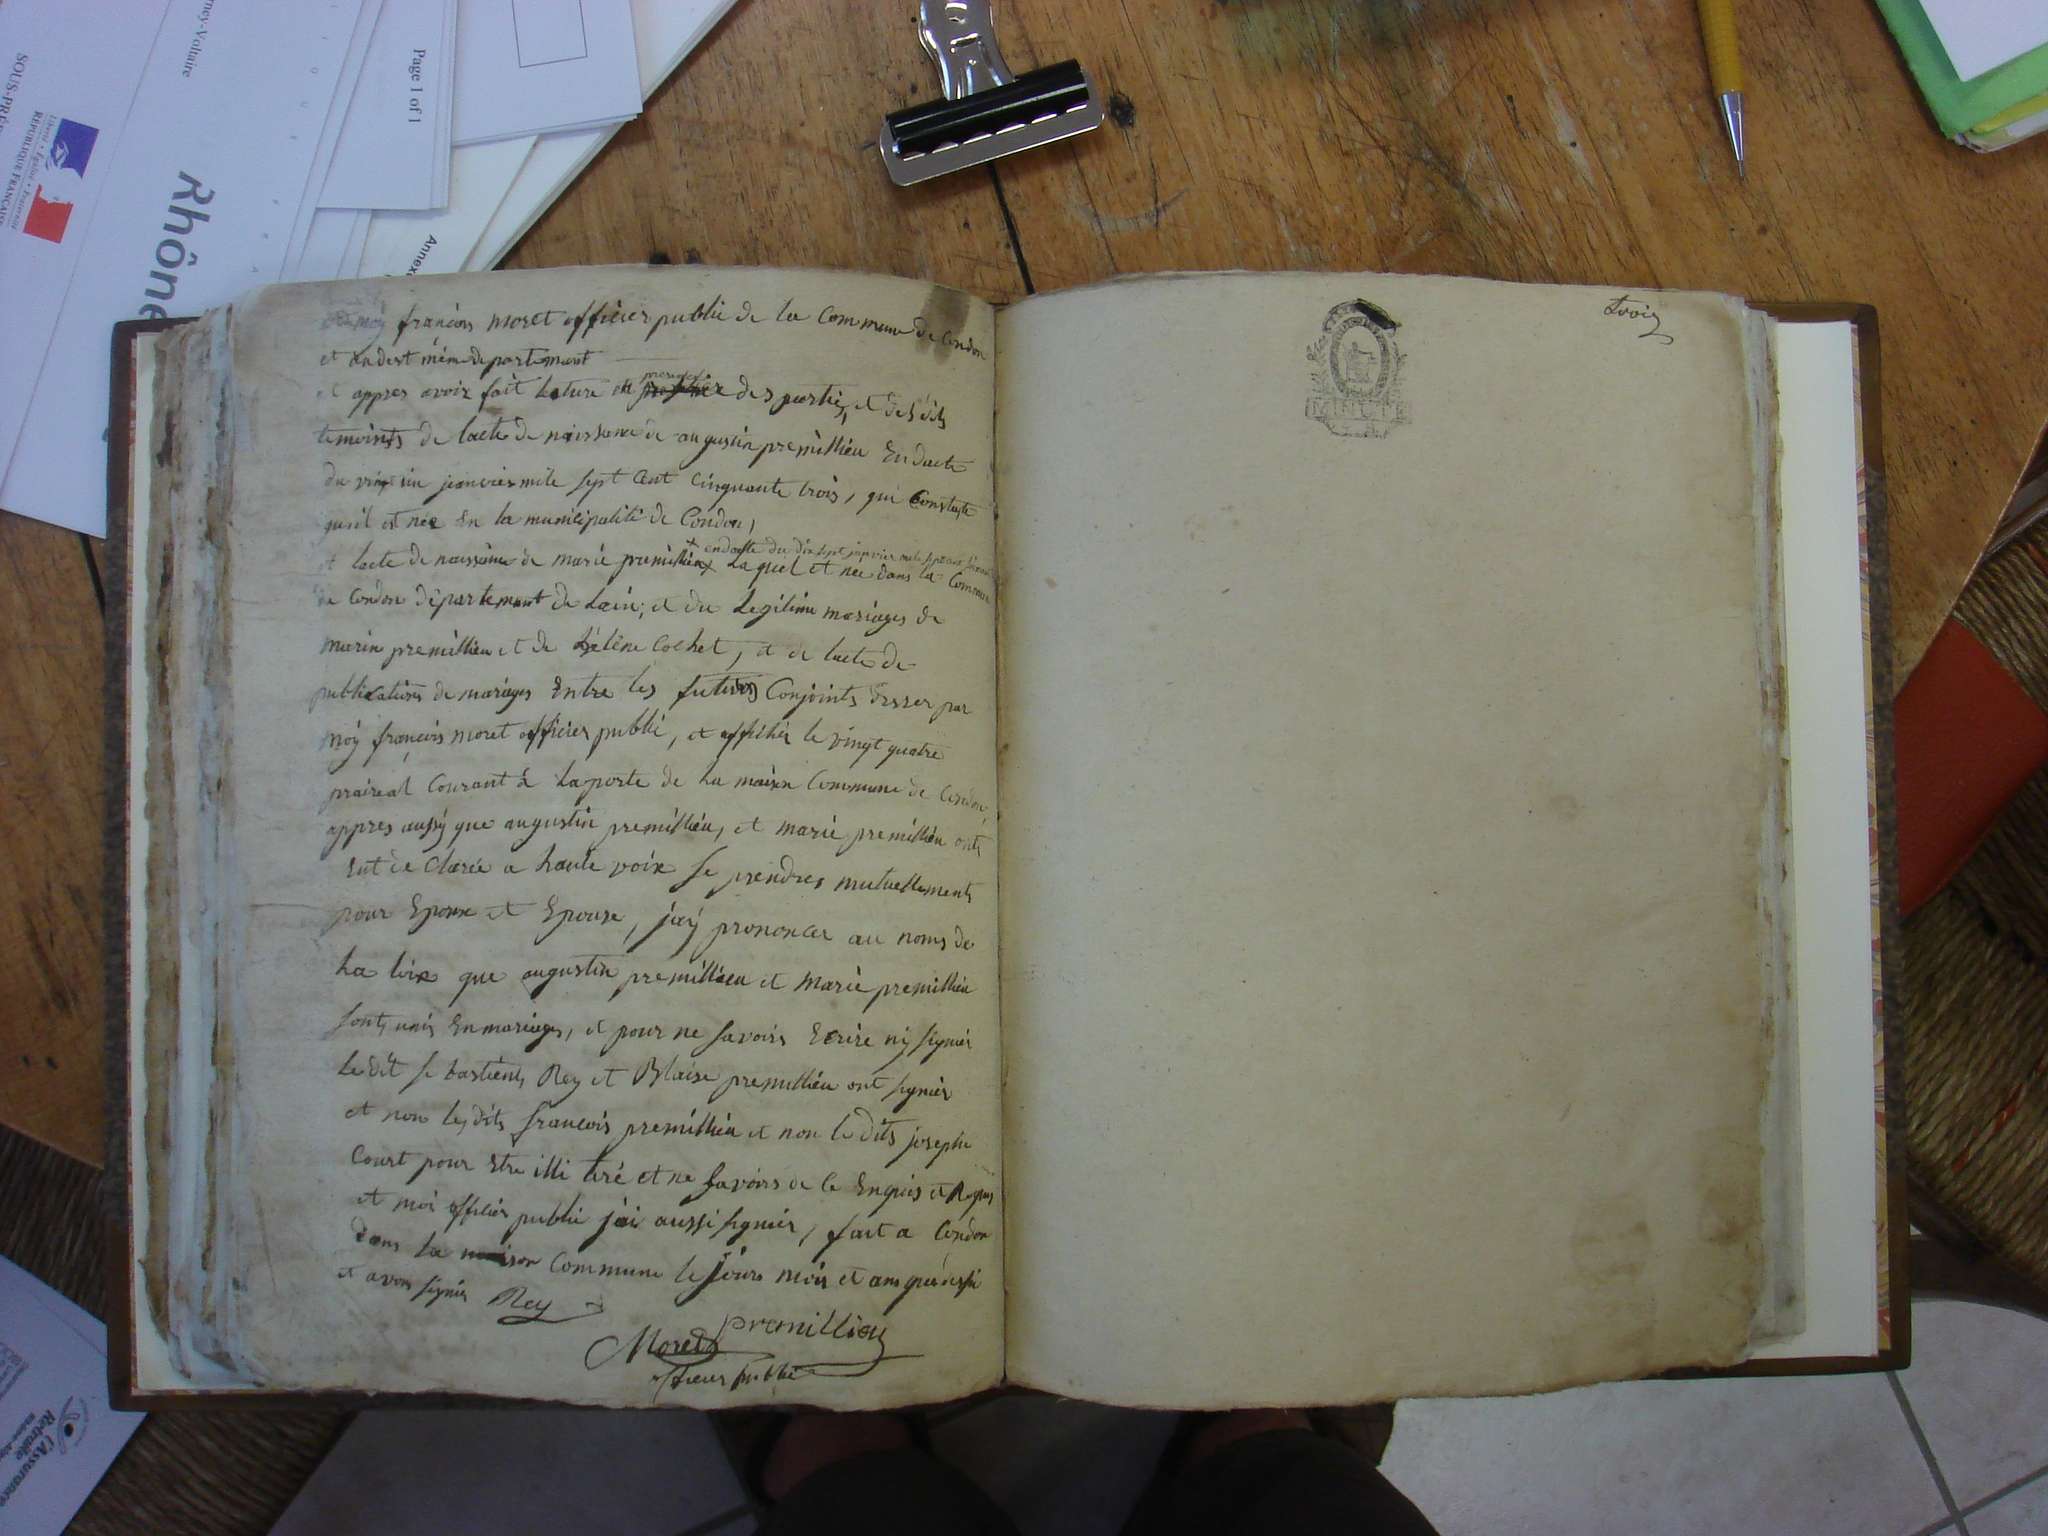 moÿ françois moret officier public de la Commune de Condon
et audest même departemant
et appres avoir fait lecture en presence des partie, et des dits
temoints de lacte de naissance de augustin premillieu En dacte
du vingt un jeanvier mile sept Cent Cinquante trois, qui Constate
quil et née En la municipalité de Condon,
+ en dacte du dix sept janvier mile sept cent
et lacte de naissance de marie premillieux Laquel et née dans la Commune
de Condon département de Lain, et du Legitime mariages de
marin premillieu et de hélène Cochet, et de lacte de
publications de mariages Entre les futures Conjoints dresser par
moÿ françois moret officier public, et affichér le vingt quatre
praireal Courant à la porte de la maison Commune de Condon,
appres aussÿ que augustin premillieu, et marie premillieu onts
Eut de Clarée a haute voix se prendres mutuellements
pour Epoux et Epouse, jaÿ prononcer au noms de
La loix que augustin premillieu et marie premillieu
sont unis En mariages, et pour ne savoirs Ecrire nÿ signiér
Le dit se bastients Rey et Blaise premillieu ont signiér
et non les dits françois premillieu et non le dits joseph
Court pour Etre illi teré et ne savoirs de ce Enquis et Requis
et moi officiér public j'ai aussi signiér, fait a Condon
dans la maison Commune le jours mois et ans que dessu
et avons signiér Rey
premillieu
Moret
officier public
trois
Rhône
Page 1 of 1
Annexe
ney-Voltaire
SOUS-PRÉ
Liberté • Égalité • Fraternité
RÉPUBLIQUE FRANÇAISE
l'Assurance
Retraite